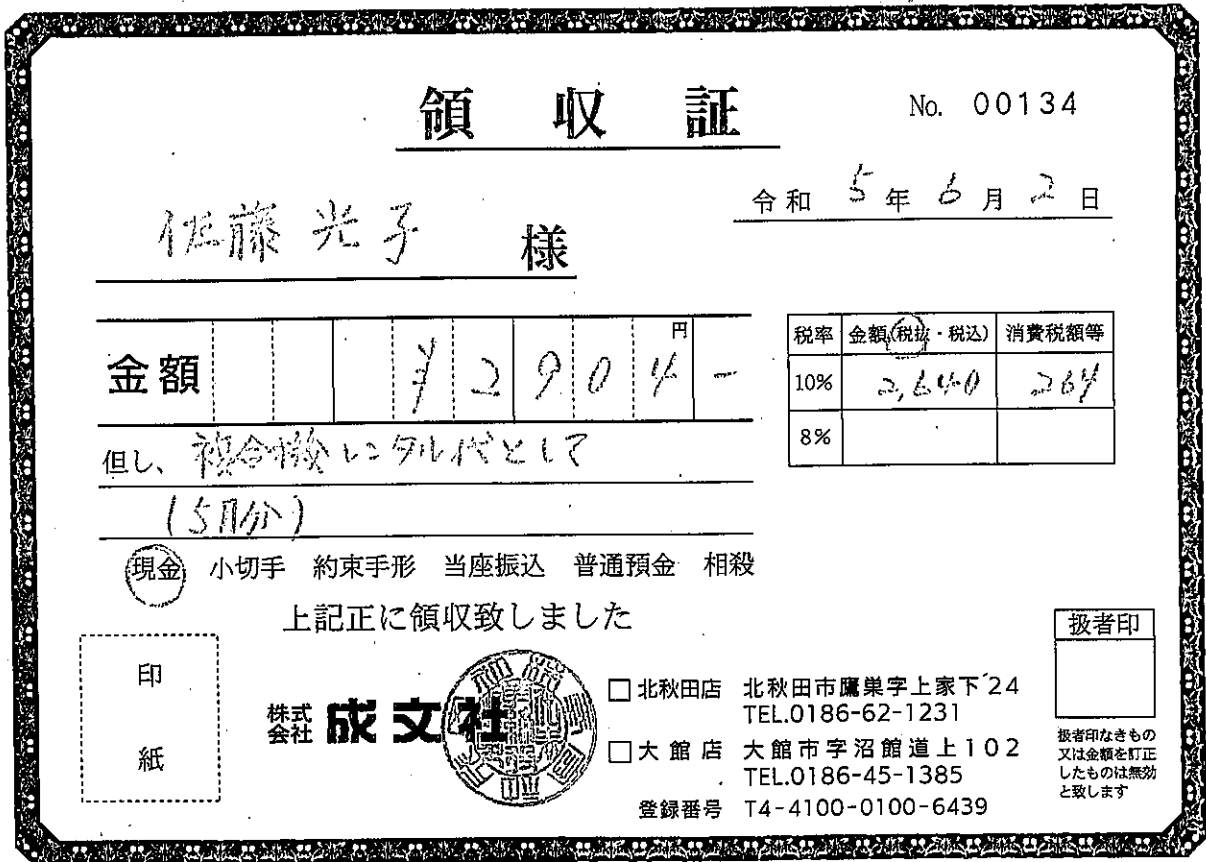 領収証
No. 00134
令和 5年 6月 2日
佐藤光子 様
金額 ¥2904- 円
税率 金額(税抜・税込) 消費税額等
10% 2,640 264
8%
但し、複合機レンタル代として
(5月分)
現金 小切手 約束手形 当座振込 普通預金 相殺
上記正に領収致しました
扱者印
印紙
株式会社 成文社
□北秋田店 北秋田市鷹巣字上家下24
TEL.0186-62-1231
□大館店 大館市字沼館道上102
TEL.0186-45-1385
登録番号 T4-4100-0100-6439
扱者印なきもの
又は金額を訂正
したものは無効
と致します